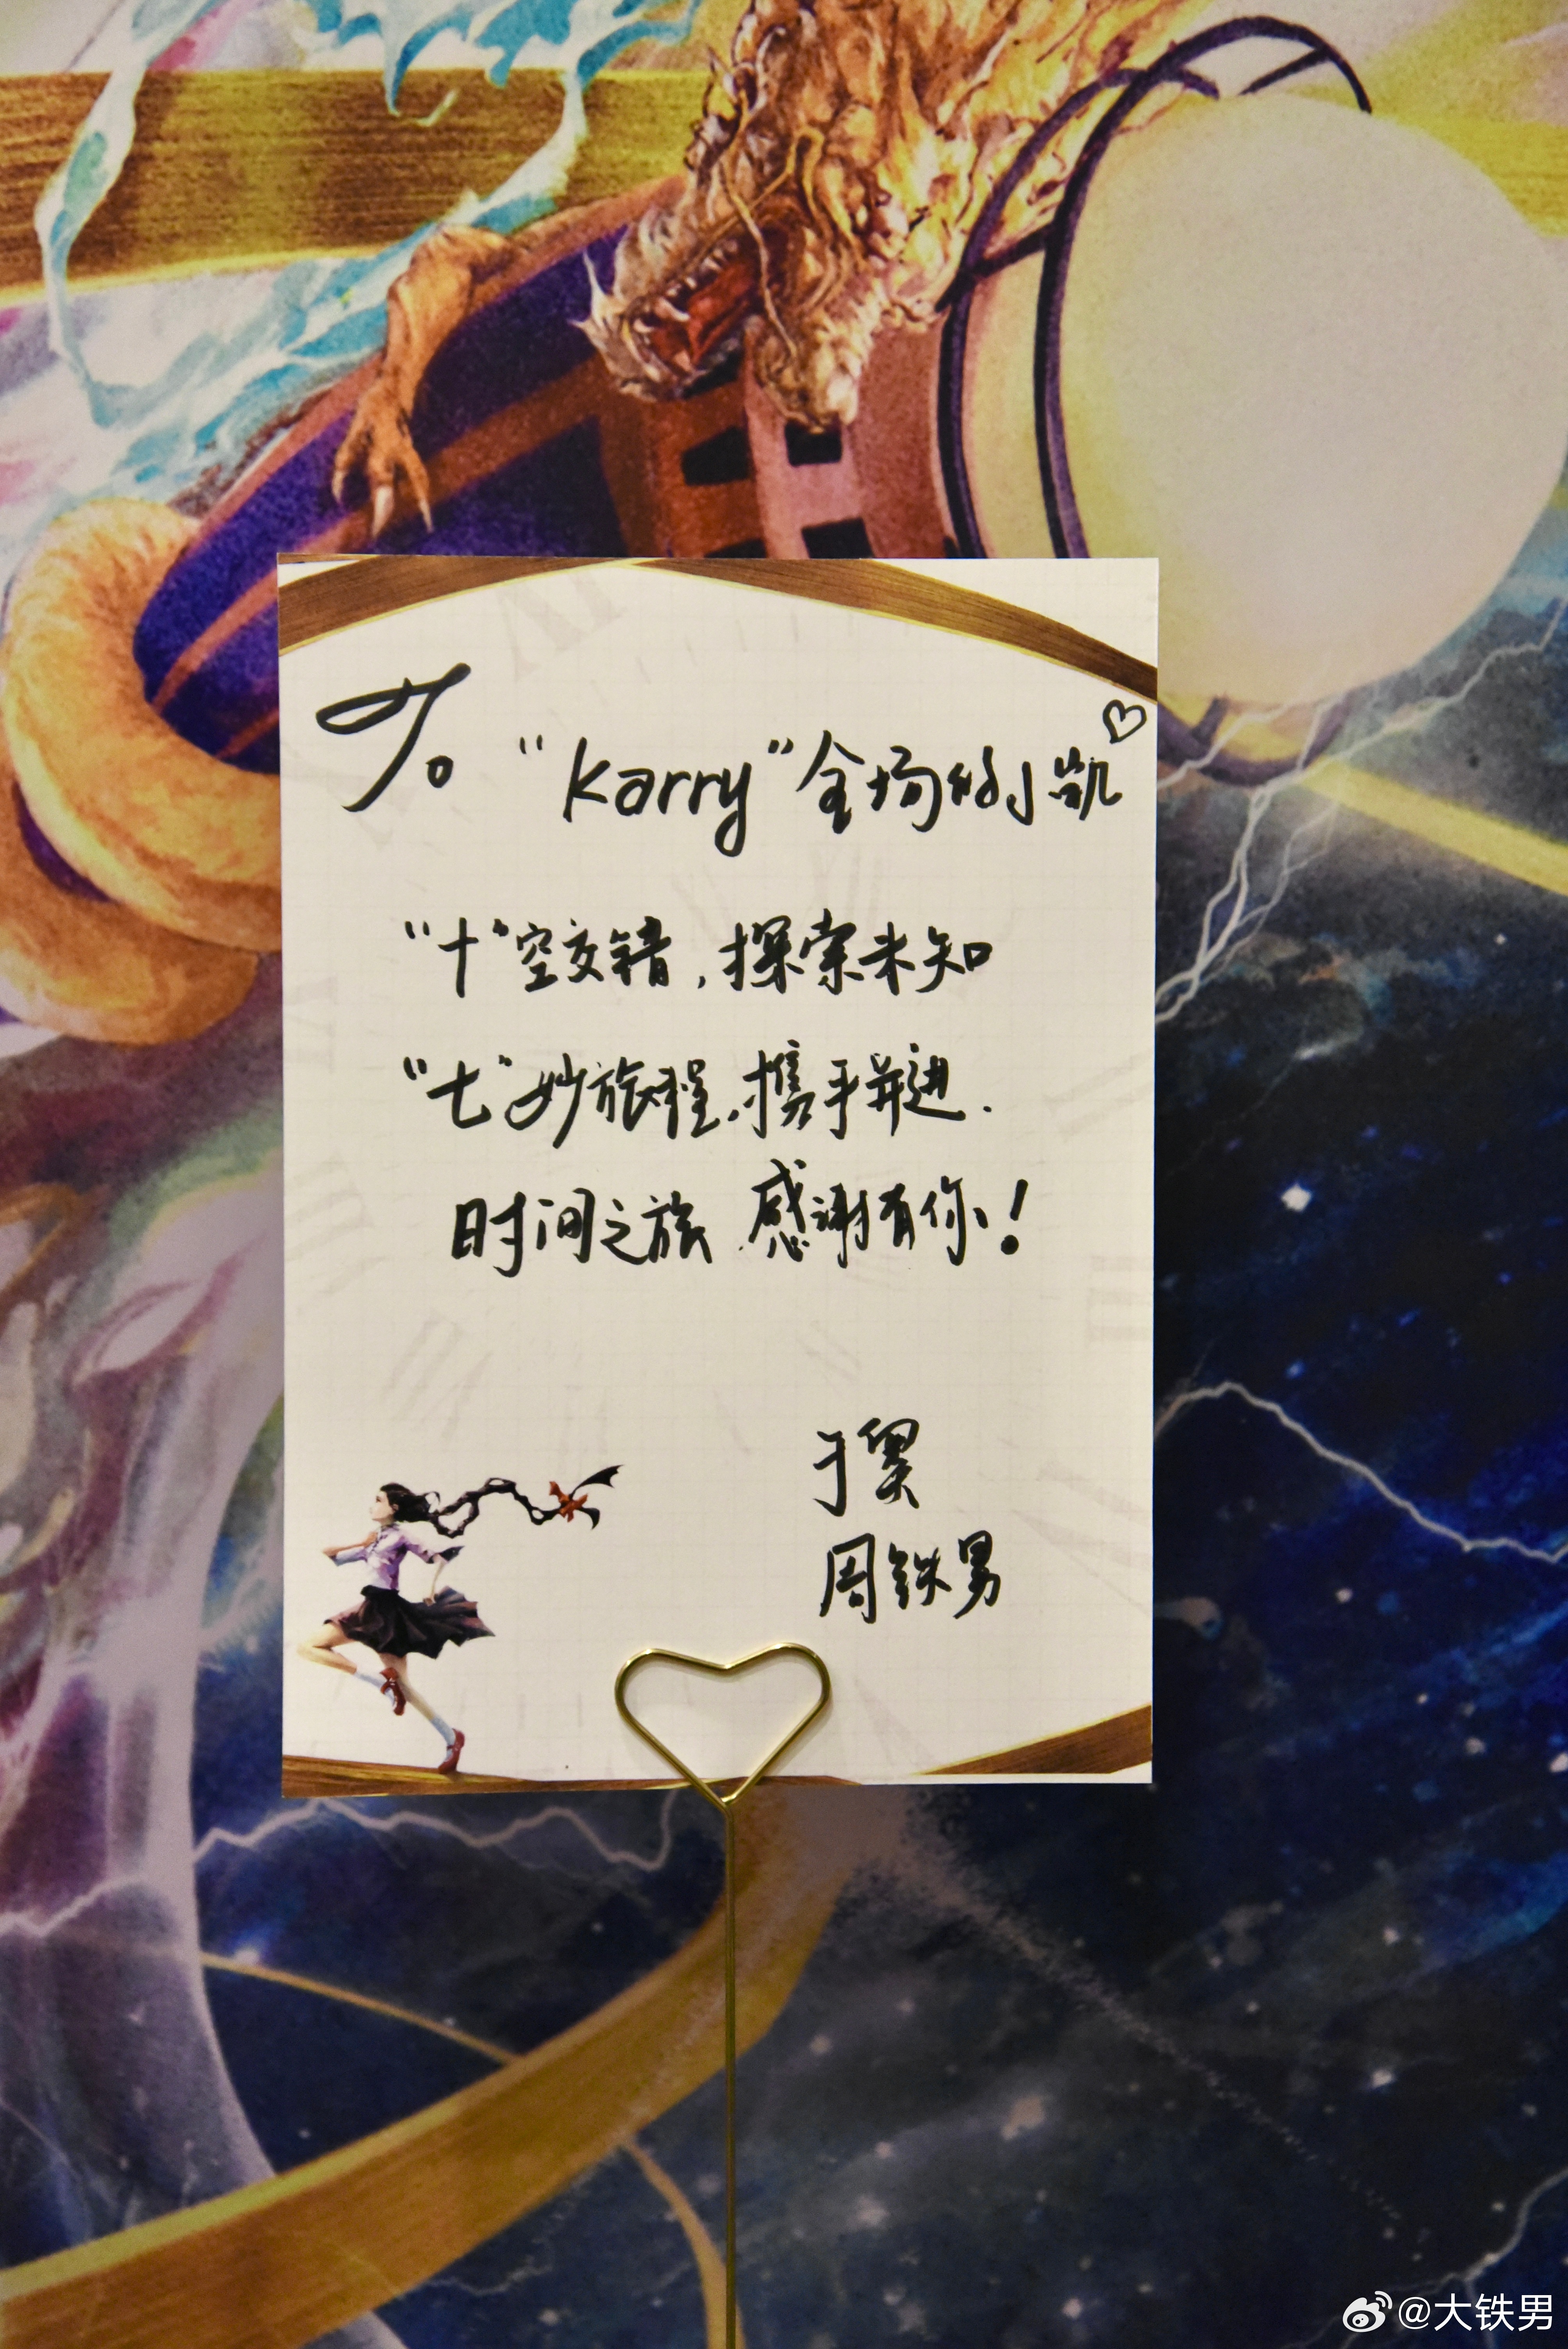 To "Karry"全场的小凯♡
"十"空交错,探索未知
"七"妙旅程,携手并进.
时间之旅 感谢有你!
于昊
周铁男
@大铁男